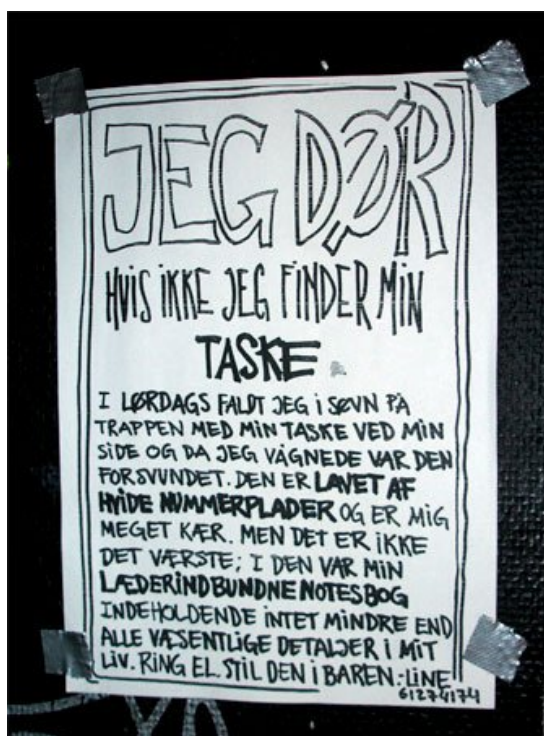 JEG DØR
HVIS IKKE JEG FINDER MIN
TASKE
I LØRDAGS FALDT JEG I SØVN PÅ
TRAPPEN MED MIN TASKE VED MIN
SIDE OG DA JEG VÅGNEDE VAR DEN
FORSVUNDET. DEN ER LAVET AF
HVIDE NUMMERPLADER OG ER MIG
MEGET KÆR. MEN DET ER IKKE
DET VÆRSTE; I DEN VAR MIN
LÆDERINDBUNDNE NOTESBOG
INDEHOLDENDE INTET MINDRE END
ALLE VÆSENTLIGE DETALJER I MIT
LIV. RING EL. STIL DEN I BAREN.-LINE
61274174